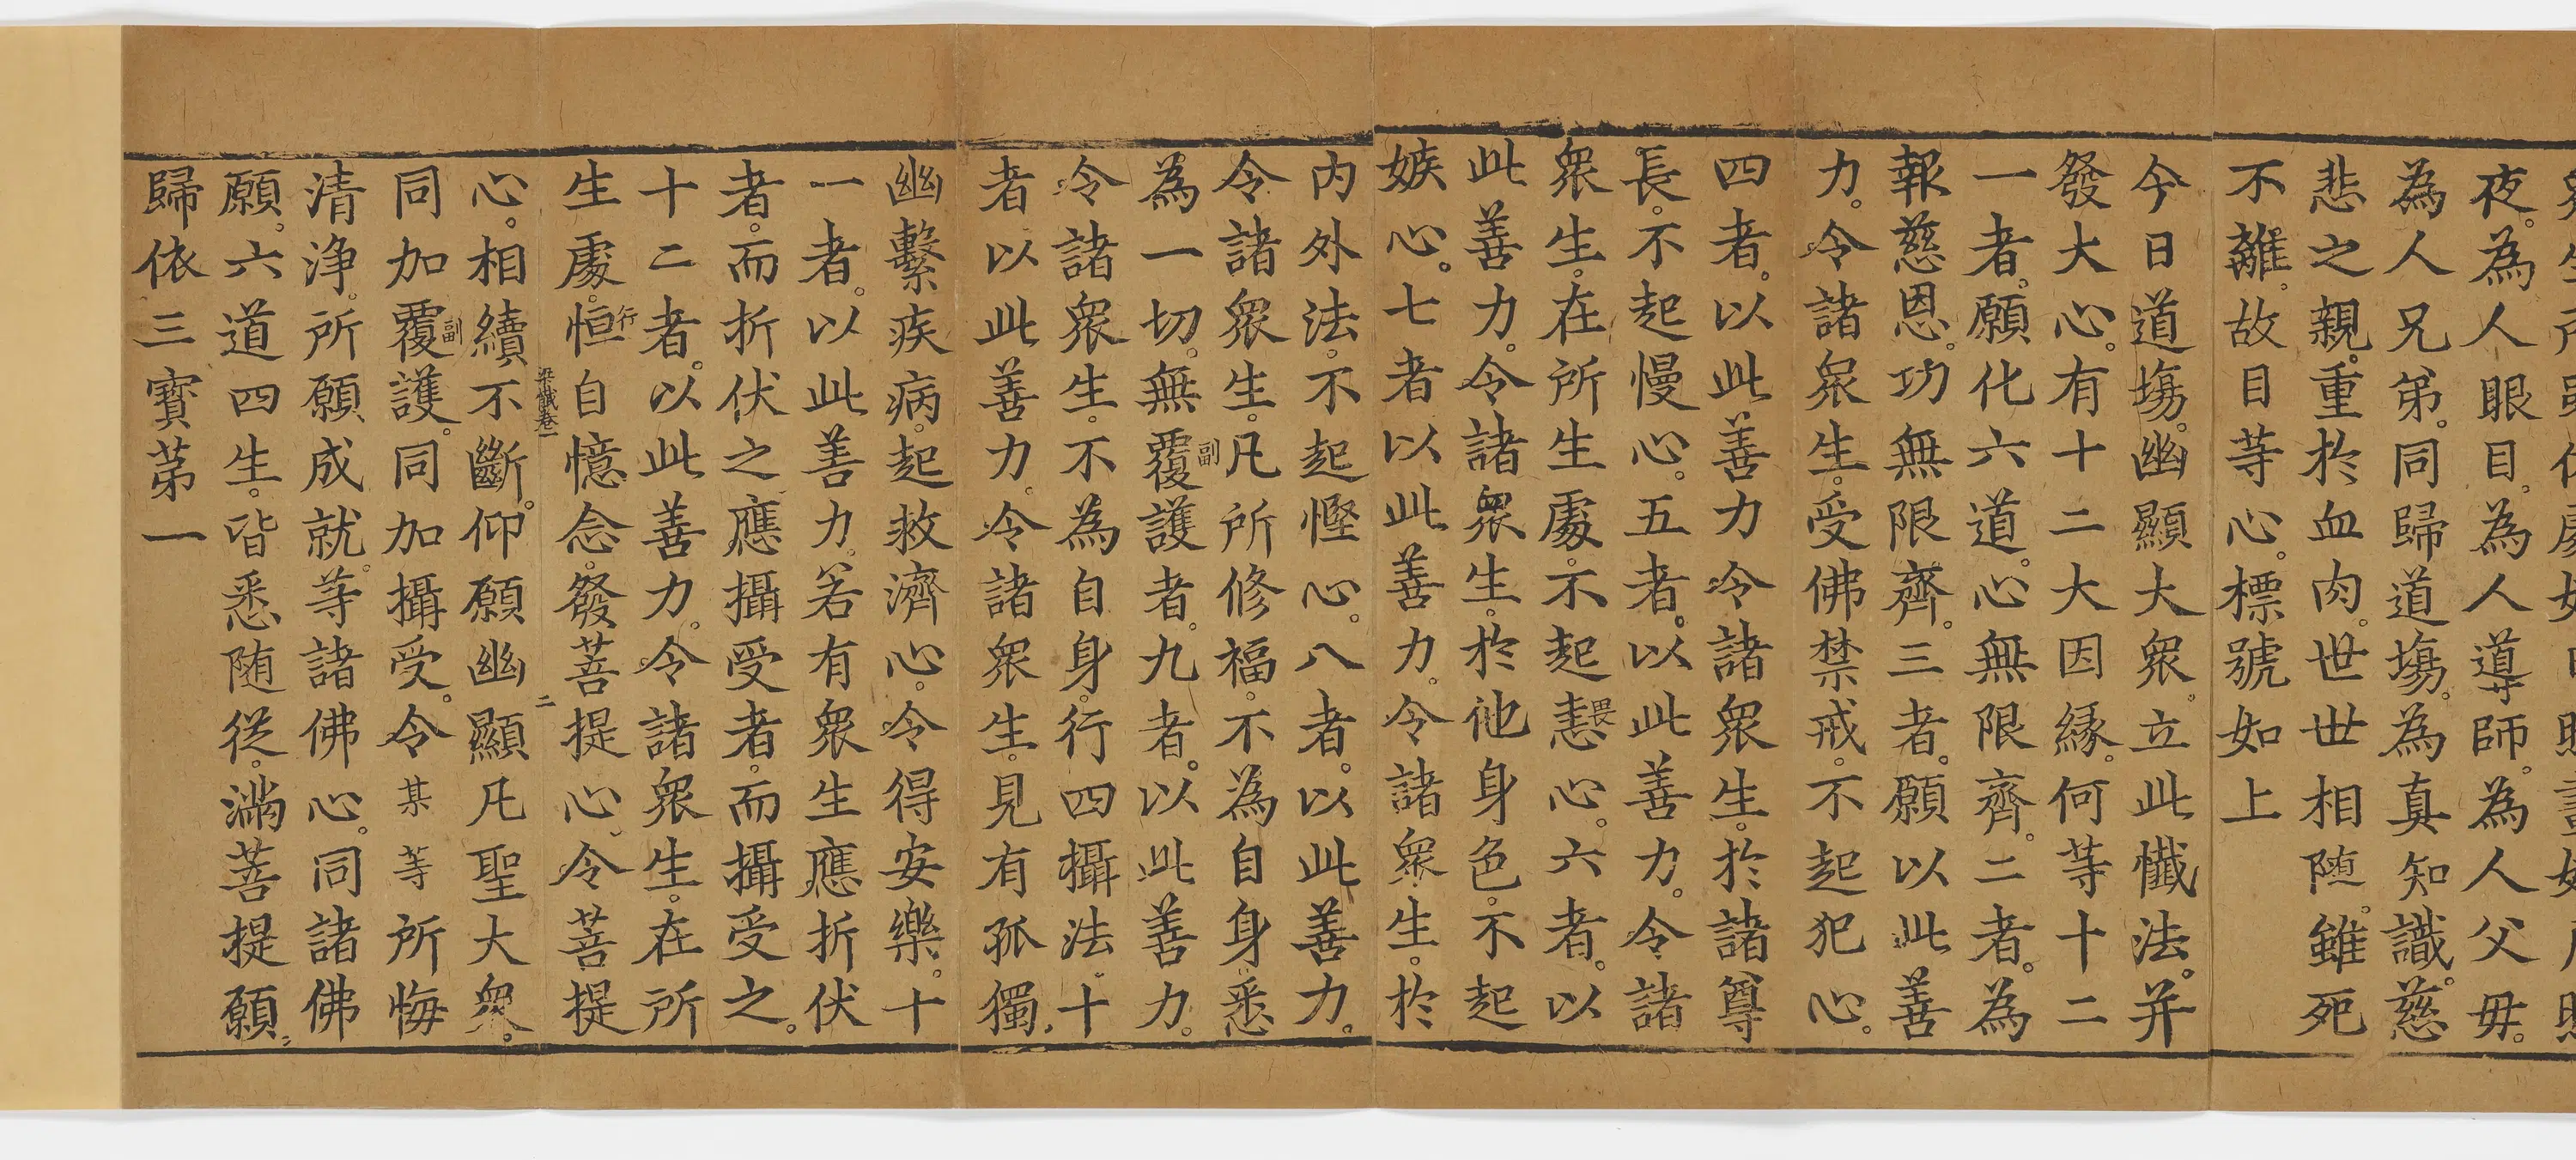 夜。為人眼目。為人導師。為人父毋。
為人兄弟。同歸道塲。為真知識。慈
悲之親。重於血肉。世世相随。雖死
不離。故目等心。標號如上
今日道塲。幽顯大衆。立此懺法。并
發大心。有十二大因縁。何等十二
一者。願化六道。心無限齊。二者。為
報慈恩。功無限齊。三者。願以此善
力。令諸衆生。受佛禁戒。不起犯心。
四者。以此善力令諸衆生。於諸尊
長。不起慢心。五者。以此善力。令諸
衆生。在所生處。不起恚心。六者。以
此善力。令諸衆生。於他身色。不起
嫉心。七者以此善力。令諸衆生。於
内外法。不起慳心。八者。以此善力。
令諸衆生。凡所修福。不為自身。悉
副
為一切。無覆護者。九者。以此善力。
令諸衆生。不為自身。行四攝法。十
者以此善力。令諸衆生。見有孤獨。
幽繫疾病。起救濟心。令得安樂。十
一者。以此善力。若有衆生應折伏
者。而折伏之應攝受者。而攝受之。
十二者。以此善力。令諸衆生。在所
行
生處。恒自憶念。發菩提心。令菩提
梁懺卷一 二
心。相續不斷。仰願幽顯凡聖大衆。
副
同加覆護。同加攝受。令某等所悔
清浄。所願成就。等諸佛心。同諸佛
願。六道四生。皆悉随從。滿菩提願。
歸依三寳苐一